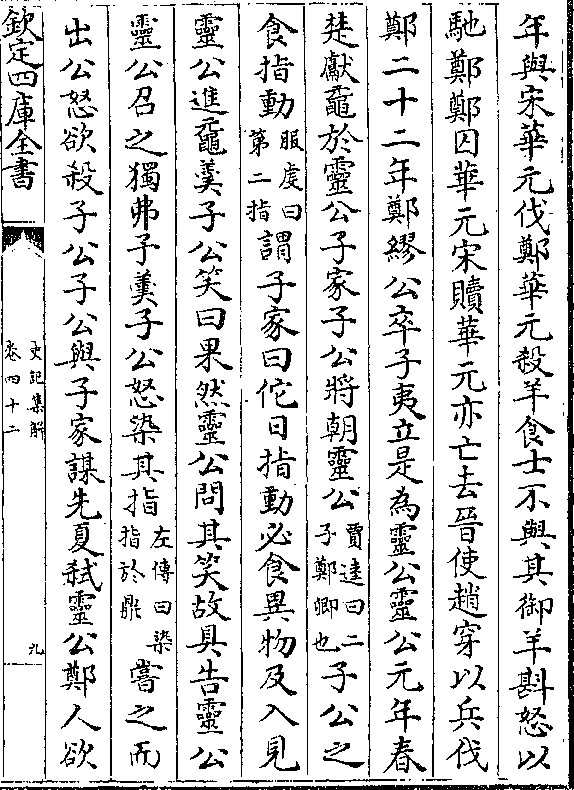 年與宋華元伐鄭華元殺羊食士不與其御羊斟怒以
馳鄭鄭囚華元宋贖華元亦亡去晉使趙穿以兵伐
鄭二十二年鄭繆公卒子夷立是為靈公靈公元年春
楚獻黿於靈公子家子公將朝靈公賈逵曰二子鄭卿也子公之
食指動服虔曰第二指謂子家曰佗日指動必食異物及入見
靈公進黿羹子公笑曰果然靈公問其笑故具告靈公
靈公召之獨弗予羹子公怒染其指左傳曰染指於鼎嘗之而
出公怒欲殺子公子公與子家謀先夏弑靈公鄭人欲
欽定四庫全書
史記集解
卷四十二
九